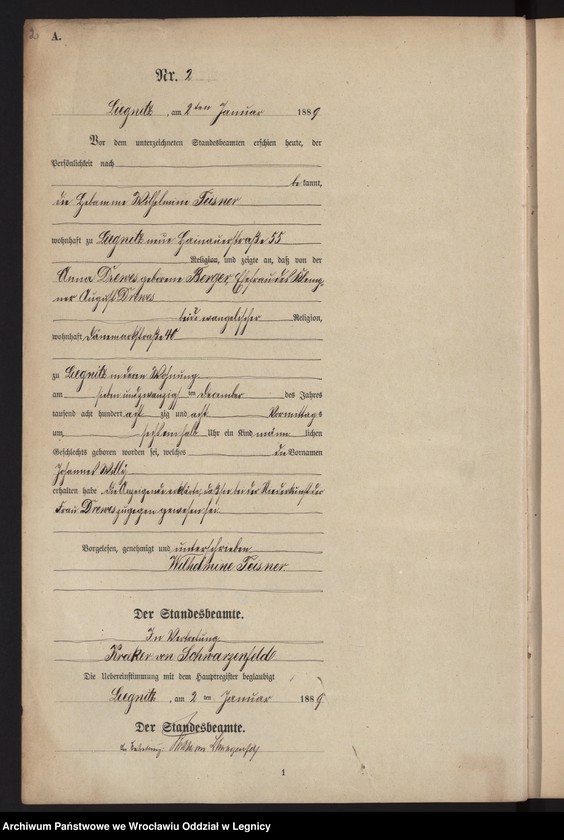 2
A.
Nr. 2
Liegnitz, am 2ten Januar 1889
Vor dem unterzeichneten Standesbeamten erschien heute, der
Persönlichkeit nach
be kannt,
die Hebamme Wilhelmine Teisner
wohnhaft zu Liegnitz neue Hainauerstraße 55
Religion, und zeigte an, daß von der
Anna Drewes geborene Berger, Ehefrau des Klemp-
ner August Drewes
beide evangelischer Religion,
wohnhaft Dänemarkstraße 40
zu Liegnitz in deren Wohnung
am sieben und zwanzigsten December des Jahres
tausend acht hundert acht zig und acht Vormittags
um sechs einhalb Uhr ein Kind männ lichen
Geschlechts geboren worden sei, welches die Vornamen
Johannes Willy
erhalten habe. Die Anzeigende erklärte, daß sie bei der Niederkunft der
Frau Drewes zugegen gewesen sei.
Vorgelesen, genehmigt und unterschrieben
Wilhelmine Teisner
Der Standesbeamte.
In Vertretung
Kraker von Schwarzenfeld
Die Uebereinstimmung mit dem Hauptregister beglaubigt
Liegnitz, am 2 ten Januar 1889
Der Standesbeamte.
In Vertretung
1
Archiwum Państwowe we Wrocławiu Oddział w Legnicy